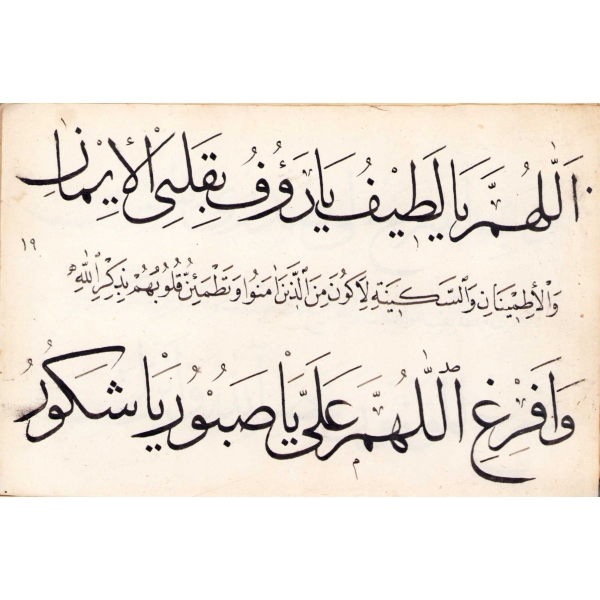 اَللّٰهُمَّ يَا لَطِيفُ يَا رَؤُفُ بِقَلْبِى الْاِيْمَانَ
١٩
وَالْاِطْمِيْنَانِ وَالسَّكِيْنَةِ لِاَكُوْنَ مِنَ الَّذِيْنَ اٰمَنُوا وَتَطْمَئِنُّ قُلُوْبُهُمْ بِذِكْرِ اللّٰهِ
وَاَفْرِغِ اللّٰهُمَّ عَلَىَّ يَا صَبُوْرُ يَا شَكُوْرُ